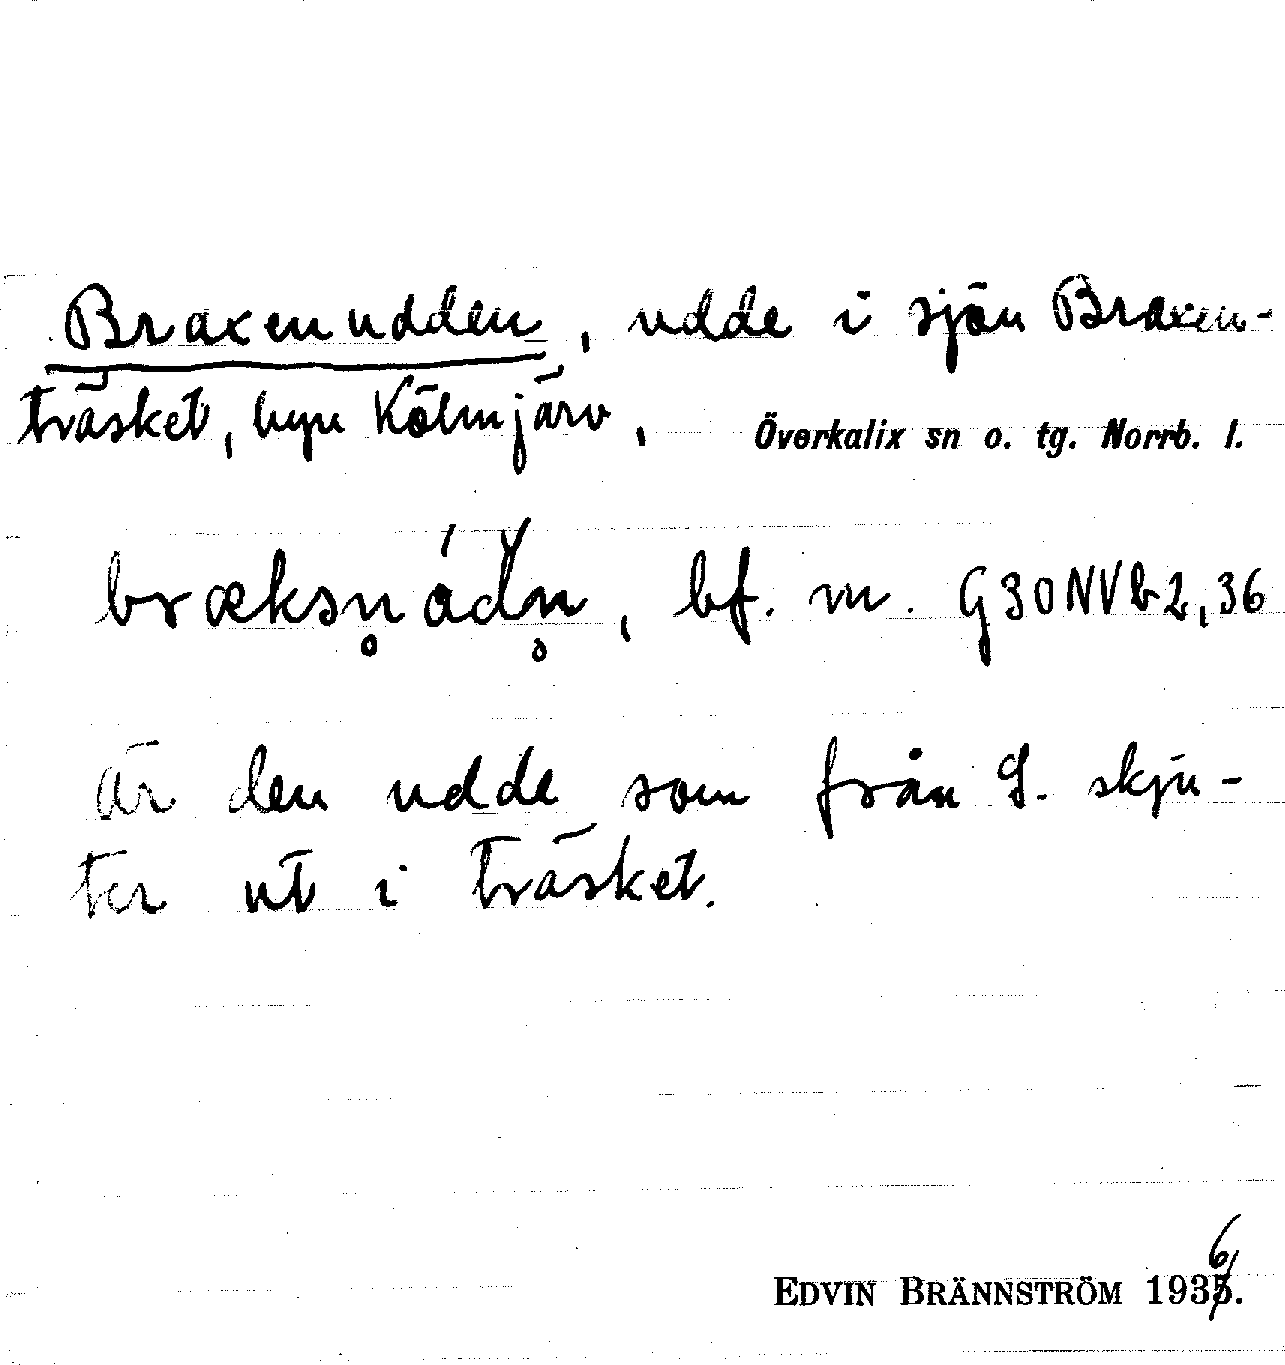 Braxenudden, udde i sjön Braxen-
träsket, byn Kölmjärv, Överkalix sn o. tg. Norrb. l.
bræksn̥ ád̆n̥, bf. m. G30NVb2,36
är den udde som från S. skju-
ter ut i träsket.
EDVIN BRÄNNSTRÖM 1936.